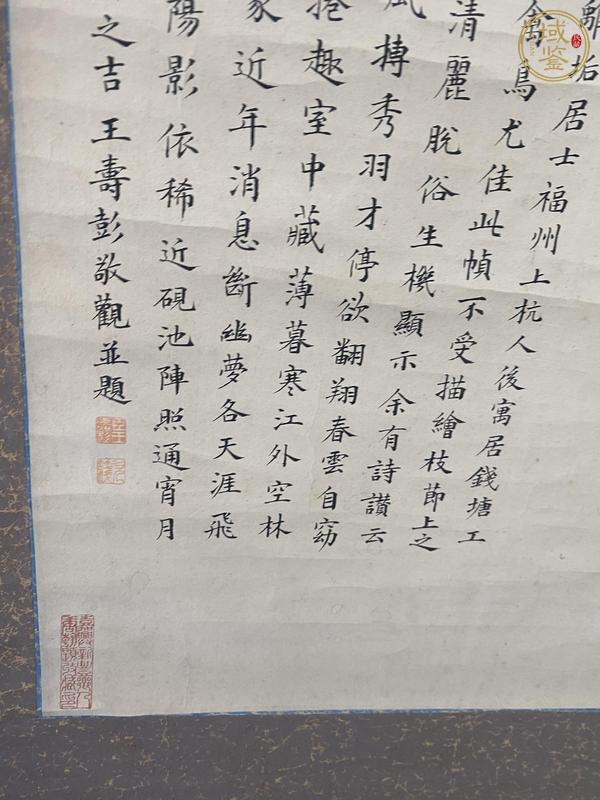 離垢居士福州上杭人後寓居錢塘工
禽鳥尤佳此幀不受描繪枝節上之
清麗脫俗生機顯示余有詩讃云
風搏秀羽才停欲翻翔春雲自窈
捲趣室中藏薄暮寒江外空林
家近年消息斷幽夢各天涯飛
陽影依稀近硯池陣照通宵月
之吉王壽彭敬觀並題
域鑒